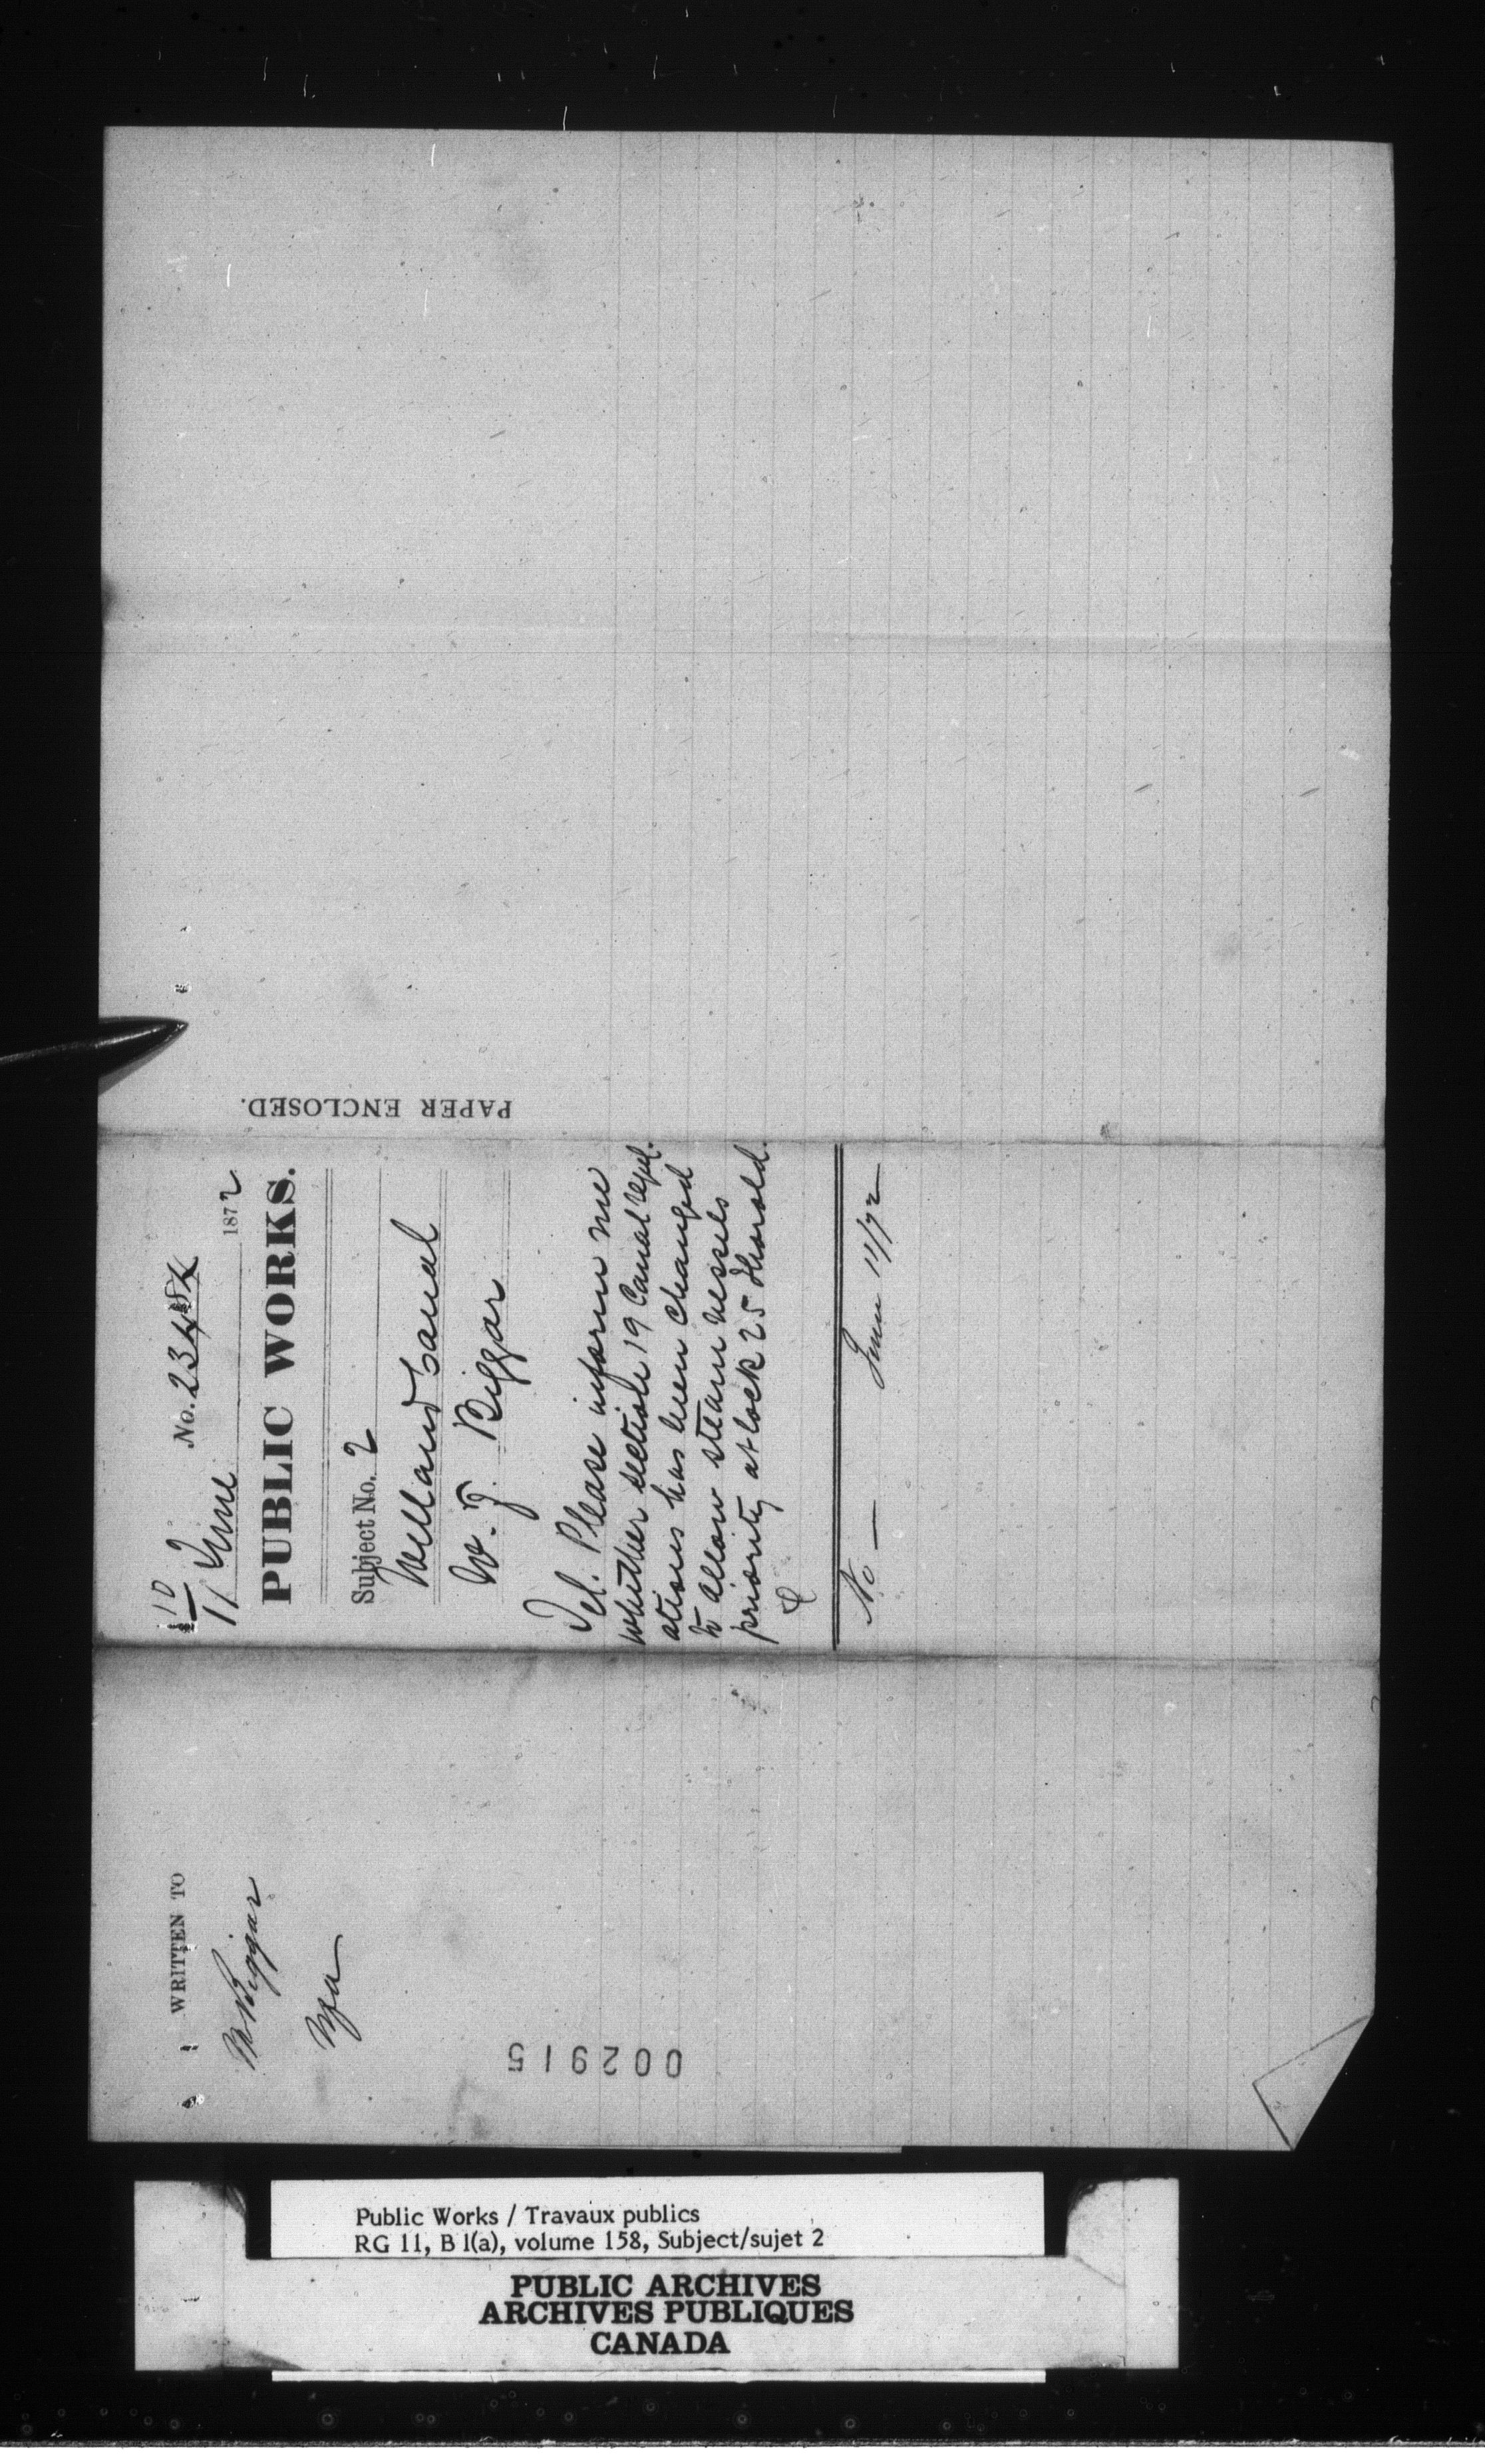 10
No. 23484
11 June 1872
PUBLIC WORKS.
Subject No. 2
Welland Canal
W. F. Biggar
Tel. Please inform me
whither section 19 Canal Regul-
ations has been changed
to allow steam vessels
priority at lock 25 Thorold.
No — June 11/72
PAPER ENCLOSED.
WRITTEN TO
Biggar
002915
Public Works / Travaux publics
RG 11, B 1(a), volume 158, Subject/sujet 2
PUBLIC ARCHIVES
ARCHIVES PUBLIQUES
CANADA